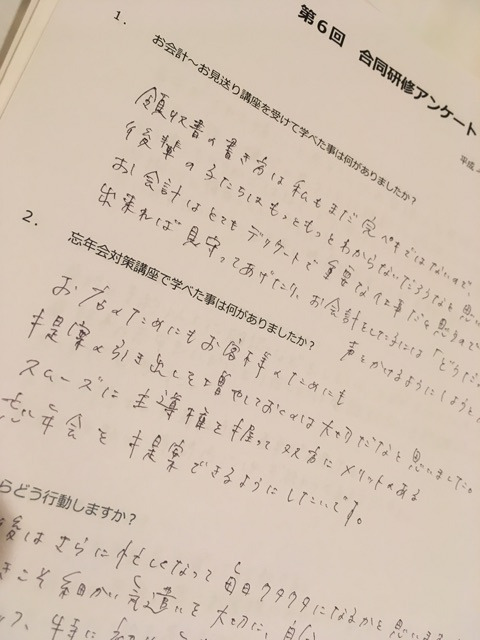 第6回 合同研修アンケート
平成
1.
お会計～お見送り講座を受けて学べた事は何がありましたか?
領収書の書き方は私もまだ完ペキではないので、
後輩の子たちはもっともっとわからないだろうなと思い
お会計はとてもデリケートで重要な仕事だと思うので
出来れば見守ってあげたり、お会計をしたろには「どうだ
声をかけるようにしようと
2.
忘年会対策講座で学べた事は何がありましたか?
お店のためにもお客様のためにも
提案の引き出しを増やしておくのは大切だなと思いました。
スムーズに主導権を握って双方にメリットのある
忘年会を提案できるようにしたいです。
らどう行動しますか?
後はさらに忙しくなって毎日クタクタになるかと思い
きこそ細かい気遣いを大切に、自